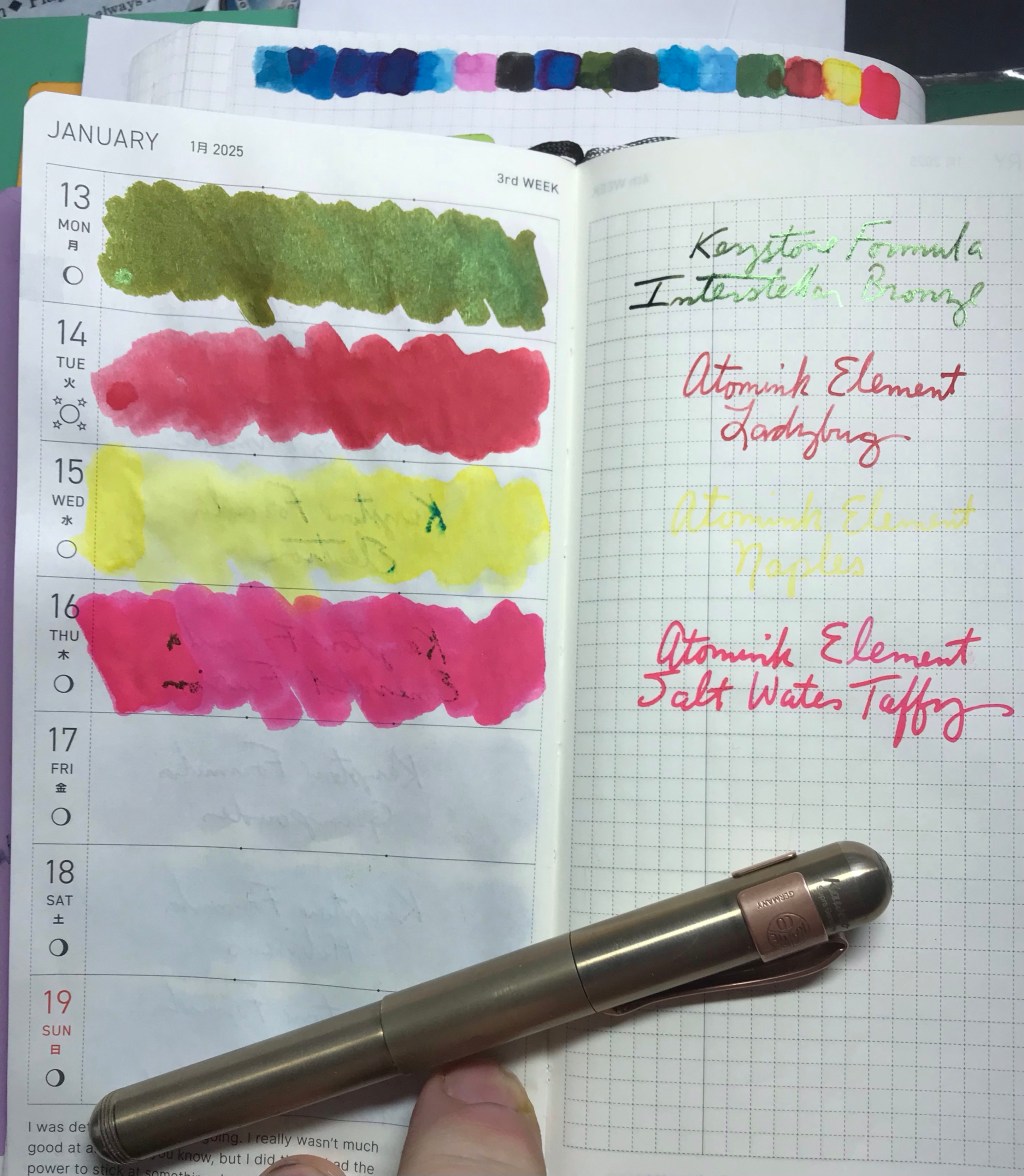 always
JANUARY 1月 2025
3rd WEEK
13
MON
月
14
TUE
火
15
WED
水
16
THU
木
17
FRI
金
18
SAT
土
19
SUN
日
Keystone Formula
Interstellar Bronze
Atomink Element
Ladybug
Atomink Element
Naples
Atomink Element
Salt Water Taffy
GERMANY
I was going. I really wasn't much
good at know, but I did the
power to stick at